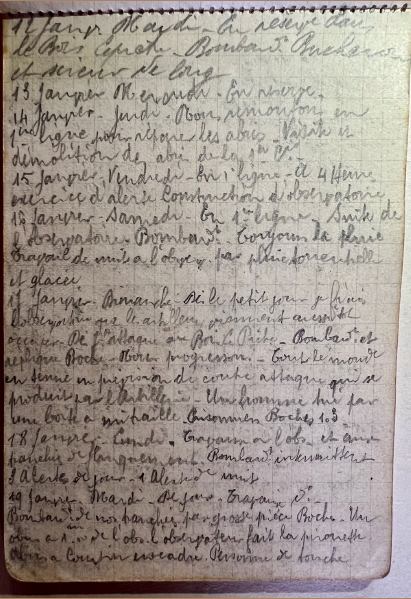 12 Janvier Mardi - En réserve dans
le Bois
et scieur de long
13 Janvier Mercredi - En réserve
14 Janvier - Jeudi - Nous remontons en
1ère ligne pour réparer les abris - et
démolition de abri de la
15 Janvier Vendredi - En 1ère ligne - A 4 Heures
exercice d'alerte Construction d'observatoire
16 Janvier - Samedi - En 1ère ligne - Suite de
l'observatoire Bombardt. Toujours la pluie
Travail de nuit à l'observ. par pluie torrentielle
et glacée
17 Janvier - Dimanche - Dès le petit jour
l'observatoire que les artilleurs viennent aussitôt
occuper. De l'attaque au Bois - Bombardt et
réplique Boche - progressons. - Tout le monde
en tenue en prévision de contre attaque qui se
produit par l'Artillerie - Un homme tué par
une boîte à mitraille Prisonniers Boches 103
18 Janvier - Lundi. Travaux à l'obs. et aux
tranchées de Bombardt intermittent
3 Alertes de jour - 1 Alerte de nuit
19 Janvier - Mardi - De jour - Travaux do
Bombardt de nos tranchées par grosse pièce Boche - Un
obus à 1.m de l'obs. l'observateur fait la pirouette
encadré. Personne de touché